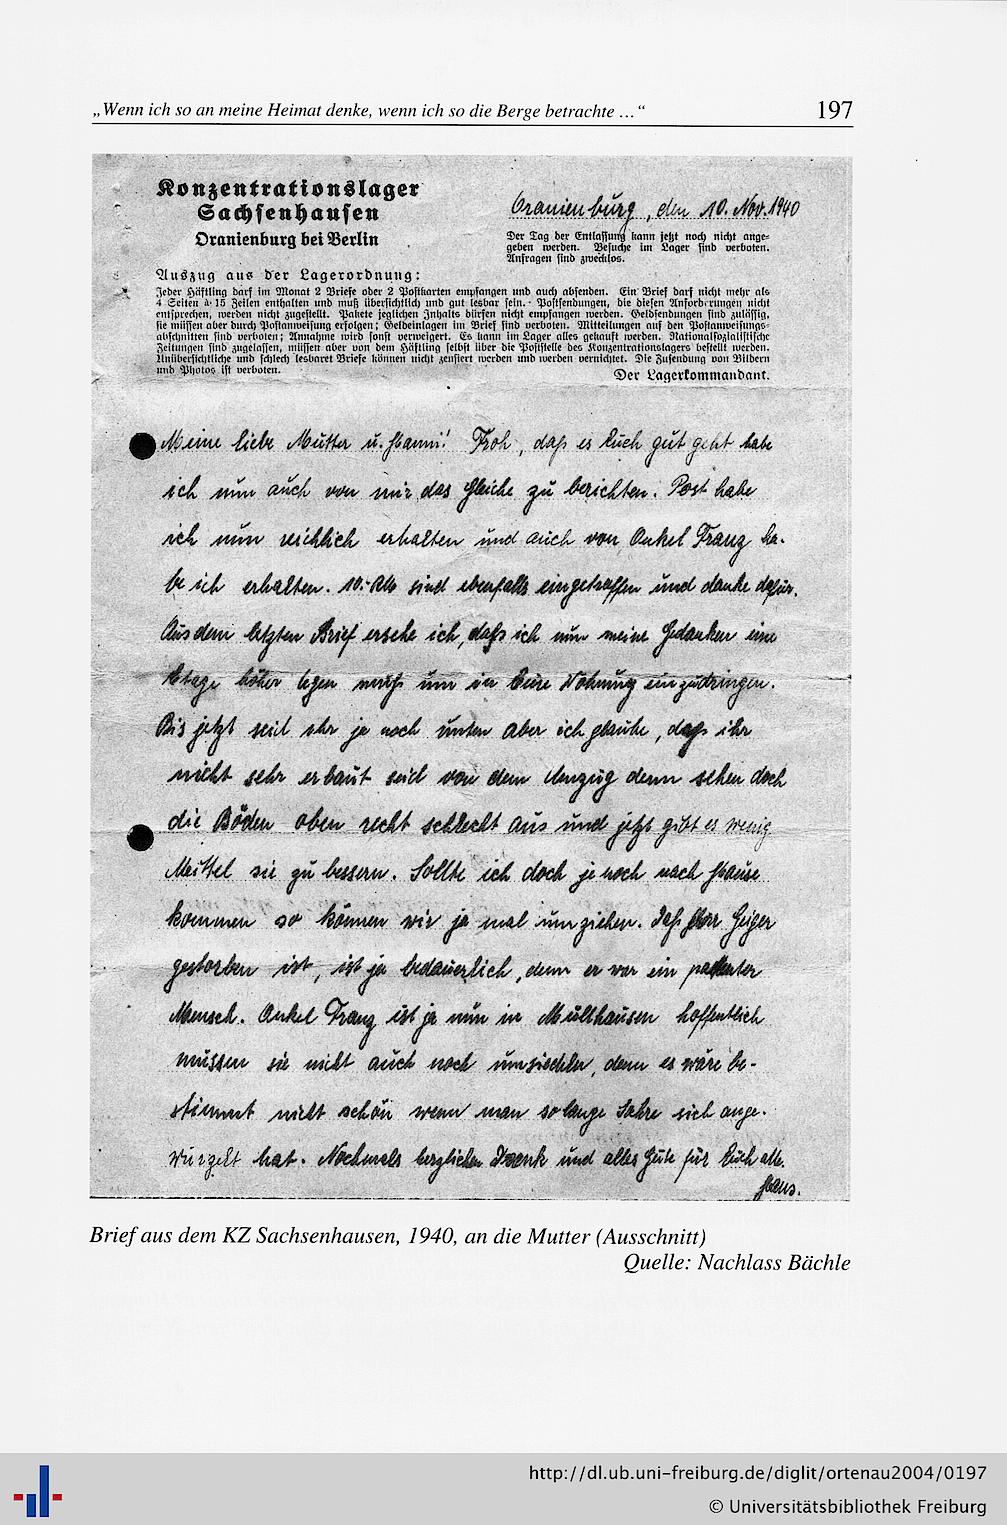 „Wenn ich so an meine Heimat denke, wenn ich so die Berge betrachte …“ 197
Konzentrationslager
Sachsenhausen
Oranienburg bei Berlin
Oranienburg, den 10. Nov. 1940
Der Tag der Entlassung kann jetzt noch nicht ange=
geben werden. Besuche im Lager sind verboten.
Anfragen sind zwecklos.
Auszug aus der Lagerordnung:
Jeder Häftling darf im Monat 2 Briefe oder 2 Postkarten empfangen und auch absenden. Ein Brief darf nicht mehr als
4 Seiten à 15 Zeilen enthalten und muß übersichtlich und gut lesbar sein. Postsendungen, die diesen Anforderungen nicht
entsprechen, werden nicht zugestellt. Pakete jeglichen Inhalts dürfen nicht empfangen werden. Geldsendungen sind zulässig,
sie müssen aber durch Postanweisung erfolgen; Geldeinlagen im Brief sind verboten. Mitteilungen auf den Postanweisungs=
abschnitten sind verboten; Annahme wird sonst verweigert. Es kann im Lager alles gekauft werden. Nationalsozialistische
Zeitungen sind zugelassen, müssen aber von dem Häftling selbst über die Poststelle des Konzentrationslagers bestellt werden.
Unübersichtliche und schlecht lesbare Briefe können nicht zensiert werden und werden vernichtet. Die Zusendung von Bildern
und Photos ist verboten.
Der Lagerkommandant.
Meine liebe Mutter u. Hanni! Froh, daß es Euch gut geht habe
ich nun auch von mir das Gleiche zu berichten. Post habe
ich nun reichlich erhalten und auch von Onkel Franz ha-
be ich erhalten. 10.- RM sind ebenfalls eingetroffen und danke dafür.
Aus dem letzten Brief ersehe ich, daß ich nun meine Gedanken eine
Etage höher legen muß um in Eure Wohnung einzudringen.
Bis jetzt seid ihr ja noch unten aber ich glaube, daß ihr
nicht sehr erbaut seid von dem Umzug denn sehen doch
die Böden oben recht schlecht aus und jetzt gibt es wenig
Mittel sie zu bessern. Sollte ich doch je noch nach Hause
kommen so können wir ja mal umziehen. Daß Herr Geiger
gestorben ist, ist ja bedauerlich, denn er war ein patenter
Mensch. Onkel Franz ist ja nun in Mülhausen hoffentlich
müssen sie nicht auch noch umsiedeln, denn es wäre be-
stimmt nicht schön wenn man so lange Jahre sich ange-
wurzelt hat. Nochmals herzlichen Dank und alles Gute für Euch alle.
Hans.
Brief aus dem KZ Sachsenhausen, 1940, an die Mutter (Ausschnitt)
Quelle: Nachlass Bächle
http://dl.ub.uni-freiburg.de/diglit/ortenau2004/0197
© Universitätsbibliothek Freiburg